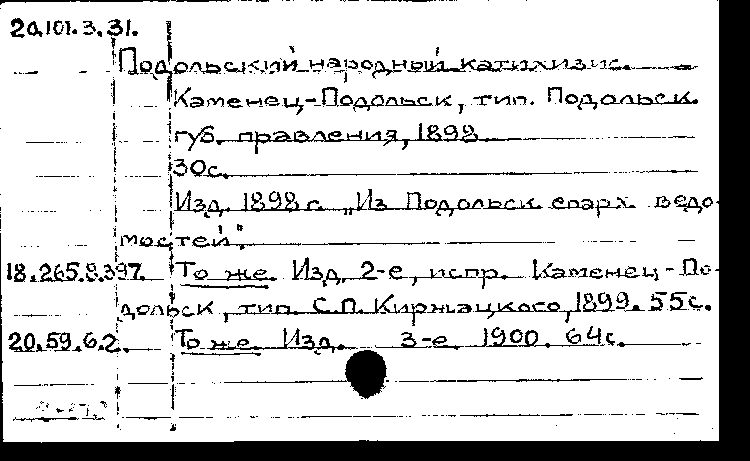 20.101.3.31.
Подольский народный катихизис.
Каменец-Подольск, тип. Подольск.
губ. правления, 1898
30с.
Изд. 1898 г. „Из Подольск. епарх. ведо-
мостей".
18.265.8.397. То же. Изд. 2-е, испр. Каменец-По-
дольск, тип. С.П. Киржацкого, 1899. 55с.
20.59.6.2. То же. Изд. 3-е. 1900. 64с.